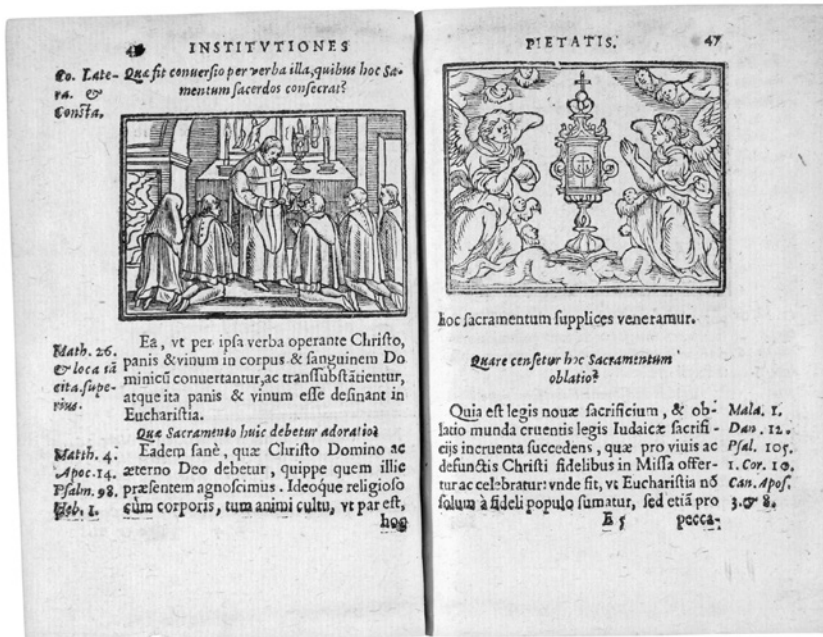 INSTITVTIONES
Co. Late-
ra. &
Consta.
Quæ fit conuersio per verba illa, quibus hoc Sa-
mentum sacerdos consecrat?
Math. 26.
& loca iā
cita. supe-
rius.
Ea, vt per ipsa verba operante Christo,
panis & vinum in corpus & sanguinem Do
minicū conuertantur, ac transsubstātientur,
atque ita panis & vinum esse desinant in
Eucharistia.
Quæ Sacramento huic debetur adoratio?
Matth. 4.
Apoc. 14.
Psalm. 98.
Heb. 1.
Eadem sanè, quæ Christo Domino ac
æterno Deo debetur, quippe quem illic
præsentem agnoscimus. Ideóque religioso
cùm corporis, tum animi cultu, vt par est,
hoc
PIETATIS.
47
hoc sacramentum supplices veneramur.
Quare censetur hoc Sacramentum
oblatio?
Quia est legis nouæ sacrificium, & ob-
latio munda cruentis legis Iudaicæ sacrifi-
cijs incruenta succedens, quæ pro viuis ac
defunctis Christi fidelibus in Missa offer-
tur ac celebratur: vnde fit, vt Eucharistia nō
solum à fideli populo sumatur, sed etiā pro
Mala. 1.
Dan. 12.
Psal. 105.
1. Cor. 10.
Can. Apos.
3. & 8.
E 5
pecca-